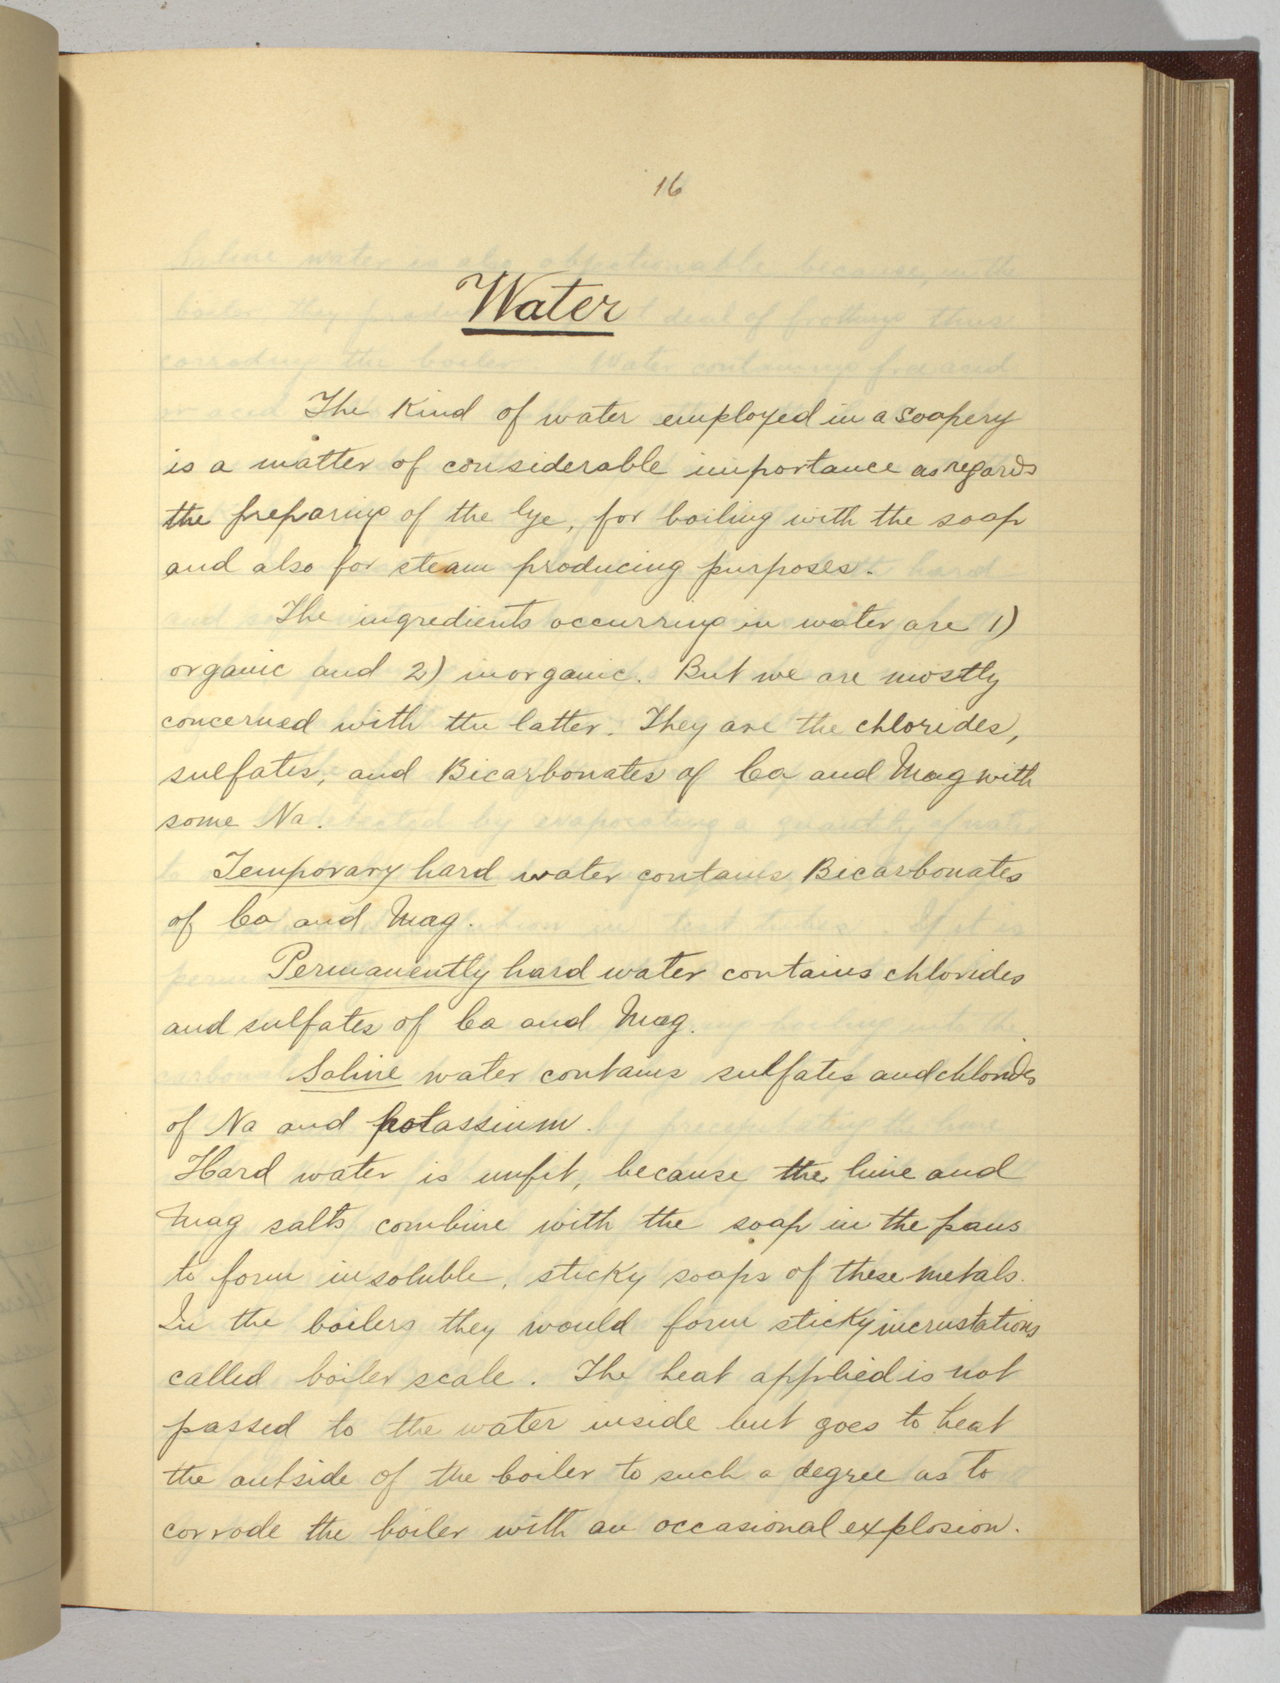 16
Water
The Kind of water employed in a soapery
is a matter of considerable importance as regards
the preparing of the lye, for boiling with the soap
and also for steam producing purposes.
The ingredients occurring in water are 1)
organic and 2) inorganic. But we are mostly
concerned with the latter. They are the chlorides,
sulfates, and Bicarbonates of Ca and Mag with
some Na.
Temporary hard water contains Bicarbonates
of Ca and Mag.
Permanently hard water contains chlorides
and sulfates of Ca and Mag.
Saline water contains sulfates and chlorides
of Na and potassium.
Hard water is unfit, because the lime and
Mag salts combine with the soap in the pans
to form insoluble, sticky soaps of these metals.
In the boilers they would form sticky incrustations
called boiler scale. The heat applied is not
passed to the water inside but goes to heat
the outside of the boiler to such a degree as to
corrode the boiler with an occasional explosion.